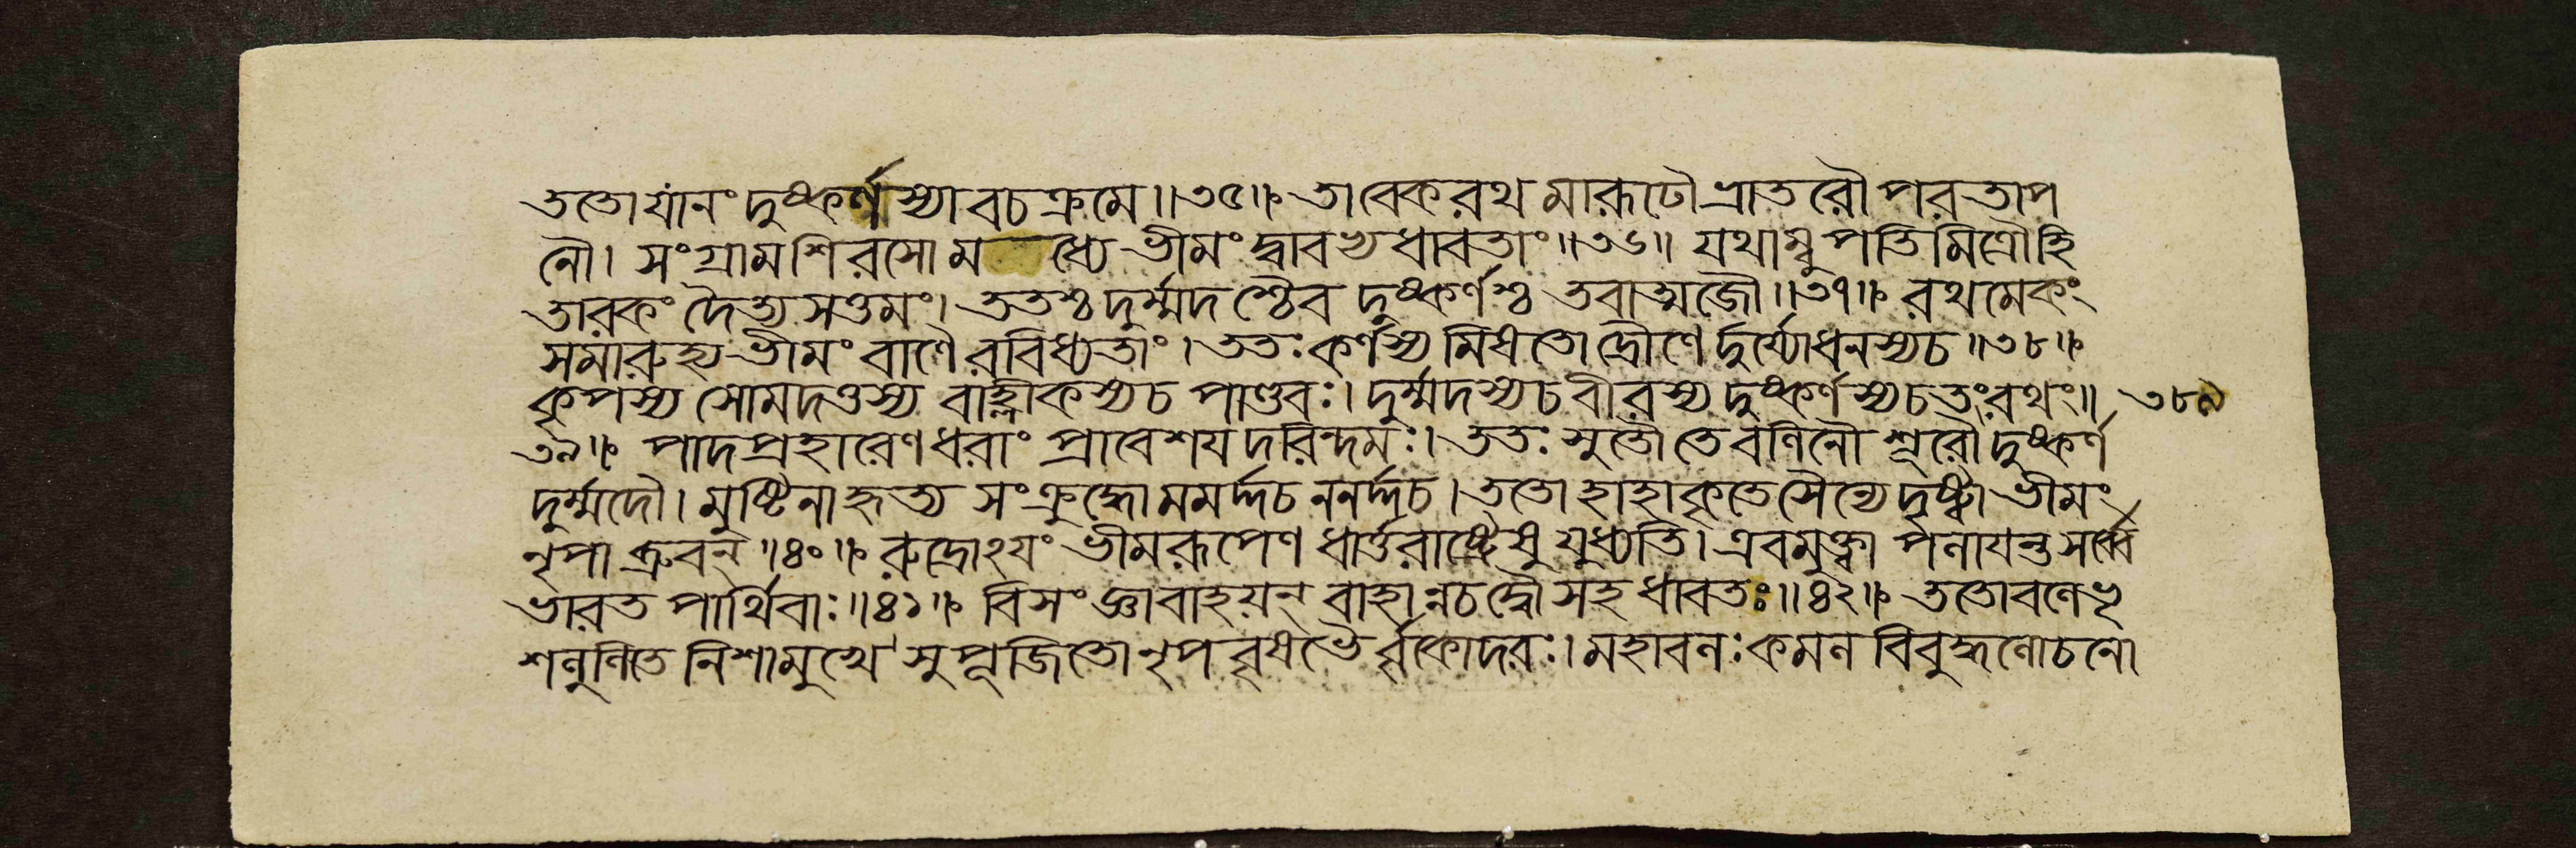 ততো যানং দুষ্কর্ণস্যাবচক্রমে ॥৩৫॥ তাবেকরথমারূঢৌ ভ্রাতরৌ পরতাপ
নৌ। সংগ্রামশিরসো মধ্যে ভীমং দ্বাবভ্যধাবতাং ॥৩৬॥ যথাম্বুপতিমিত্রৌ হি
তারকং দৈত্যসত্তমং। ততশ্চ দুর্ম্মদশ্চৈব দুষ্কর্ণশ্চ তবাত্মজৌ ॥৩৭॥ রথমেকং
সমারুহ্য ভীমং বাণৈরবিধ্যতাং। ততঃ কর্ণস্য মিষতো দ্রৌণের্দুর্য্যোধনস্যচ ॥৩৮॥
কৃপস্য সোমদত্তস্য বাহ্লীকস্যচ পাণ্ডবঃ। দুর্ম্মদস্যচ বীরস্য দুষ্কর্ণস্যচ তং রথং॥ ৩৮৯
৩৯॥ পাদপ্রহারেণ ধরাং প্রাবেশযদরিন্দমঃ। ততঃ সুতৌ তে বলিনৌ শূরৌ দুষ্কর্ণ
দুর্ম্মদৌ। মুষ্টিনাহত্য সংক্রুদ্ধো মমর্দ্দচ ননর্দ্দচ। ততো হাহাকৃতে সৈন্যে দৃষ্ট্বা ভীমং
নৃপাব্রুবন্ ॥৪০॥ রুদ্রোঽযং ভীমরূপেণ ধার্ত্তরাষ্ট্রেষু যুধ্যতি। এবমুক্ত্বা পলাযন্ত সর্ব্বে
ভারত পার্থিবাঃ ॥৪১॥ বিসংজ্ঞাবাহযন্ বাহান্নচ দ্বৌ সহ ধাবতঃ ॥৪২॥ ততো বলে ভৃ
শলুলিতে নিশামুখে সুপূজিতো নৃপবৃষভৈর্ব্বৃকোদরঃ। মহাবলঃ কমলবিবুদ্ধলোচনো